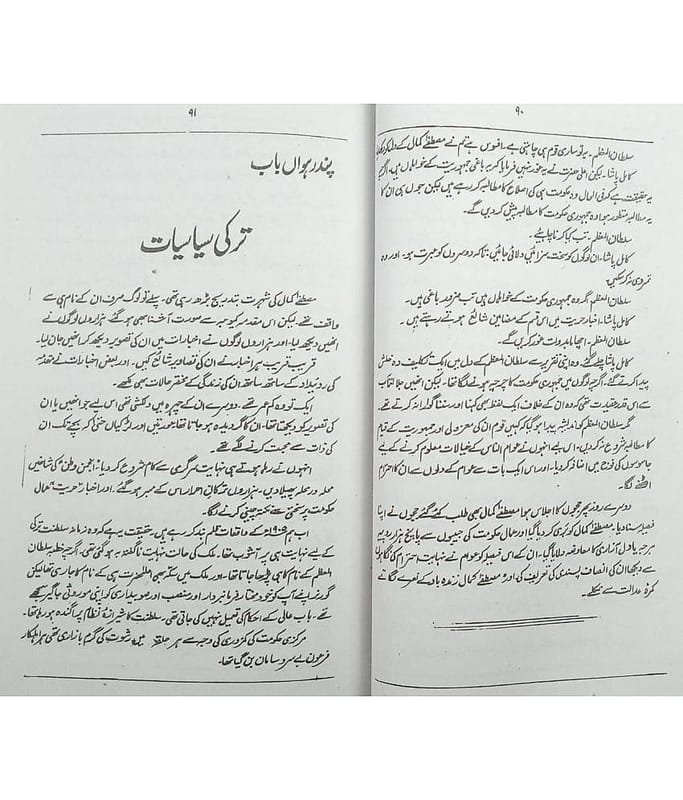 ۹۰
سلطان المعظم۔ یہ تو ساری قوم ہی چاہتی ہے۔ افسوس ہے تم نے مصطفےٰ کمال کے دل کو
کامل پاشا۔ لیکن اعلیٰ حضرت نے یہ غور نہیں فرمایا کہ یہ باغی جمہوریت کے خواہاں ہیں۔ اگرچہ
یہ حقیقت ہے کہ فی الحال وہ حکومت ہی کی اصلاح کا مطالبہ کر رہے ہیں لیکن جوں ہی ان کا
یہ مطالبہ منظور ہوا وہ جمہوری حکومت کا مطالبہ پیش کر دیں گے۔
سلطان المعظم۔ تب کیا کرنا چاہئیے۔
کامل پاشا۔ ان لوگوں کو سخت سزائیں دلائی جائیں۔ تاکہ دوسروں کو عبرت ہو۔ اور وہ
تمردی نہ کر سکیں۔
سلطان المعظم۔ اگر وہ جمہوری حکومت کے خواہاں ہیں تب ضرور باغی ہیں۔
کامل پاشا۔ اخبار حریت میں اس قسم کے مضامین شائع ہوتے رہتے ہیں۔
سلطان المعظم۔ اچھا ما بدولت غور کریں گے۔
کامل پاشا چلے گئے۔ وہ اپنی تقریر سے سلطان المعظم کے دل میں ایک تکلیف دہ خلش
پیدا کرتے گئے۔ اگرچہ لوگوں میں جمہوری حکومت کا چرچہ ہونے لگا تھا۔ لیکن انھیں جلالتمآب
سے اس قدر عقیدت تھی کہ وہ ان کے خلاف ایک لفظ بھی کہنا اور سننا گوارا نہ کرتے تھے۔
مگر سلطان المعظم کو اندیشہ پیدا ہو گیا کہ کہیں قوم ان کی معزولی اور جمہوریت کے قیام
کا مطالبہ شروع نہ کر دیں۔ اس لیے انہوں نے عوام الناس کے خیالات معلوم کرنے کے لیے
جاسوسوں کی فوج میں اضافہ کر دیا۔ اور اس ایک بات سے عوام کے دلوں سے ان کا احترام
اٹھنے لگا۔
دوسرے روز پھر ججوں کا اجلاس ہوا مصطفےٰ کمال بھی طلب کئے گئے ججوں نے اپنا
فیصلہ سنا دیا۔ مصطفےٰ کمال کو بری کر دیا گیا اور عمال حکومت کی جیبوں سے پانچ ہزار روپیہ
ہرجہ یا دل آزاری کا معاوضہ دلایا گیا۔ ان کے اس فیصلہ کو عوام نے نہایت احترام کی نگاہوں
سے دیکھا ان کی انصاف پسندی کی تعریف کی۔ اور مصطفےٰ کمال زندہ باد کے نعرے لگاتے
کمرۂ عدالت سے نکلے۔
۹۱
پندرہواں باب
ترکی سیاسیات
مصطفےٰ کمال کی شہرت بتدریج بڑھ رہی تھی۔ پہلے تو لوگ صرف ان کے نام ہی سے
واقف تھے۔ لیکن اس مقدمہ کی وجہ سے صورت آشنا بھی ہو گئے۔ ہزاروں لوگوں نے
انھیں دیکھ لیا۔ اور ہزاروں لوگوں نے اخبارات میں ان کی تصویر دیکھ کر انھیں جان لیا۔
قریب قریب ہر اخبار نے ان کی تصاویر شائع کیں۔ اور بعض اخبارات نے مقدمہ
کی روئیداد کے ساتھ ساتھ ان کی زندگی کے مختصر حالات بھی لکھے۔
ایک تو وہ کم عمر تھے۔ دوسرے ان کے چہرہ میں دلکشی تھی اس لیے جو انھیں یا ان
کی تصویر کو دیکھتا تھا۔ ان کا گرویدہ ہو جاتا تھا۔ عورتیں اور لڑکیاں حتیٰ کہ بچے تک ان
کی ذات سے محبت کرنے لگے تھے۔
انہوں نے رہا ہوتے ہی نہایت سرگرمی سے کام شروع کر دیا۔ انجمن وطن کی شاخیں
محلہ در محلہ پھیلا دیں۔ ہزاروں ترکان احرار اس کے ممبر ہو گئے۔ اور اخبار حریت عمال
حکومت پر سختی سے نکتہ چینی کرنے لگا۔
اب ہم ۱۹۰۵ء کے واقعات قلم بند کر رہے ہیں حقیقت یہ ہے کہ وہ زمانہ سلطنت ترکی
کے لیے نہایت ہی پر آشوب تھا۔ ملک کی حالت نہایت ناگفتہ بہ ہو گئی تھی۔ اگرچہ خطبہ سلطان
المعظم کے نام کا ہی پڑھا جاتا تھا۔ اور ملک میں سکہ بھی اعلحضرت ہی کے نام کا جاری تھا لیکن
گورنر اپنے آپ کو خود مختار فرمانبردار اور منصب اور صوبیداری کو اپنی موروثی جاگیر سمجھے
تھے۔ باب عالی کے احکام کی تعمیل نہیں کی جاتی تھی۔ سلطنت کا شیرازۂ نظام پراگندہ ہو رہا تھا۔
مرکزی حکومت کی کمزوری کی وجہ سے ہر حلقہ میں رشوت کی گرم بازاری تھی ہر اہلکار
فرعون بے سر و سامان بن گیا تھا۔